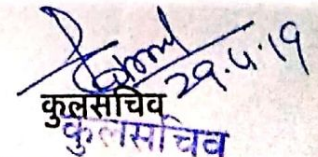 29.4.19
कुलसचिव
कुलसचिव